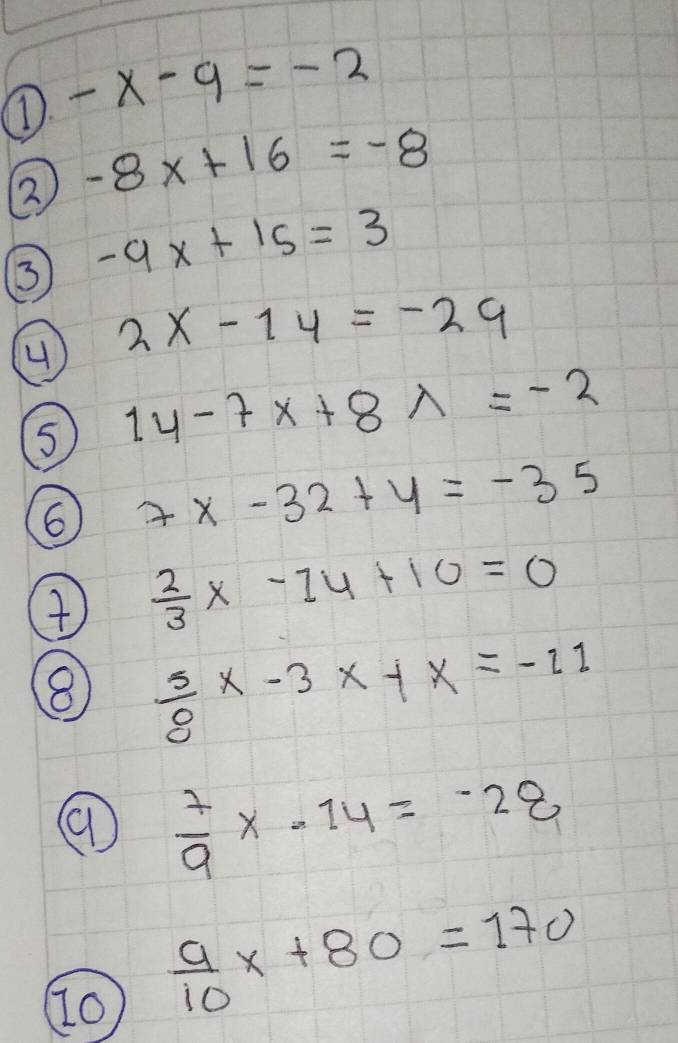 ① -x-9=-2
② -8x+16=-8
③ -9x+15=3
④ 2x-14=-29
⑤ 14-7x+8x=-2
⑥ 7x-32+4=-35
⑦ 2/3 x-14+10=0
⑧ 5/8 x-3x+x=-11
⑨ 7/9 x-14=-28
⑩ 9/10 x+80=170